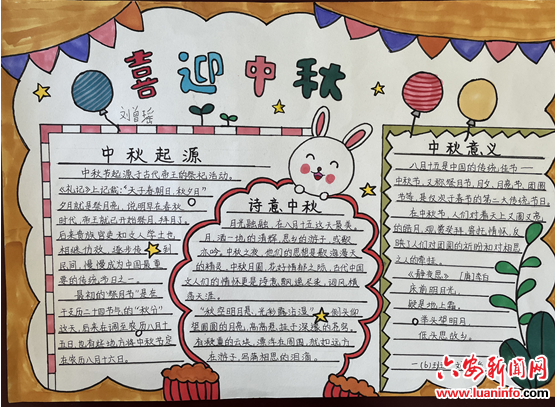 喜迎中秋
刘曾瑶
中秋起源
中秋节起源于古代帝王的祭祀活动。
《礼记》上记载:"天子春朝日,秋夕月"
夕月就是祭月亮,说明早在春秋
时代,帝王就已开始祭月、拜月了。
后来贵族官吏和文人学士也
相继仿效,逐步传到
民间,慢慢成为中国最重
要的传统节日之一。
最初的"祭月节"是在
干支历二十四节气的"秋分"
这天,后来在调至农历八月十
五日,也有些地方将中秋节定
在农历八月十六日。
诗意中秋
月光融融,在八月十五这天最美。
月,洒一地的清辉,思乡的游子,或歌
亦吟。中秋之夜,他们的思想是歌海漫天
的精灵。中秋月圆,花好情郁之际,古代中国
文人们的情怀更是诗意飘逸
"秋空明月悬,光彩露沾湿"
望圆圆的月亮
在秋重的
在游子
的泪滴。
中秋意义
八月十五是中国的传统佳节——
中秋节,又称祭月节、月夕、月亮节、团圆
节等,是仅次于春节的第二大传统节日。
在中秋节,人们对着天上又圆又亮
的皓月,观赏祭拜、寄托情怀,反
映了人们对团圆的祈盼和对相思
之人的牵挂。
《静夜思》 [唐]李白
床前明月光,
疑是地上霜。
举头望明月,
低头思故乡。
一(6)班
六安新闻网
www.luaninfo.com